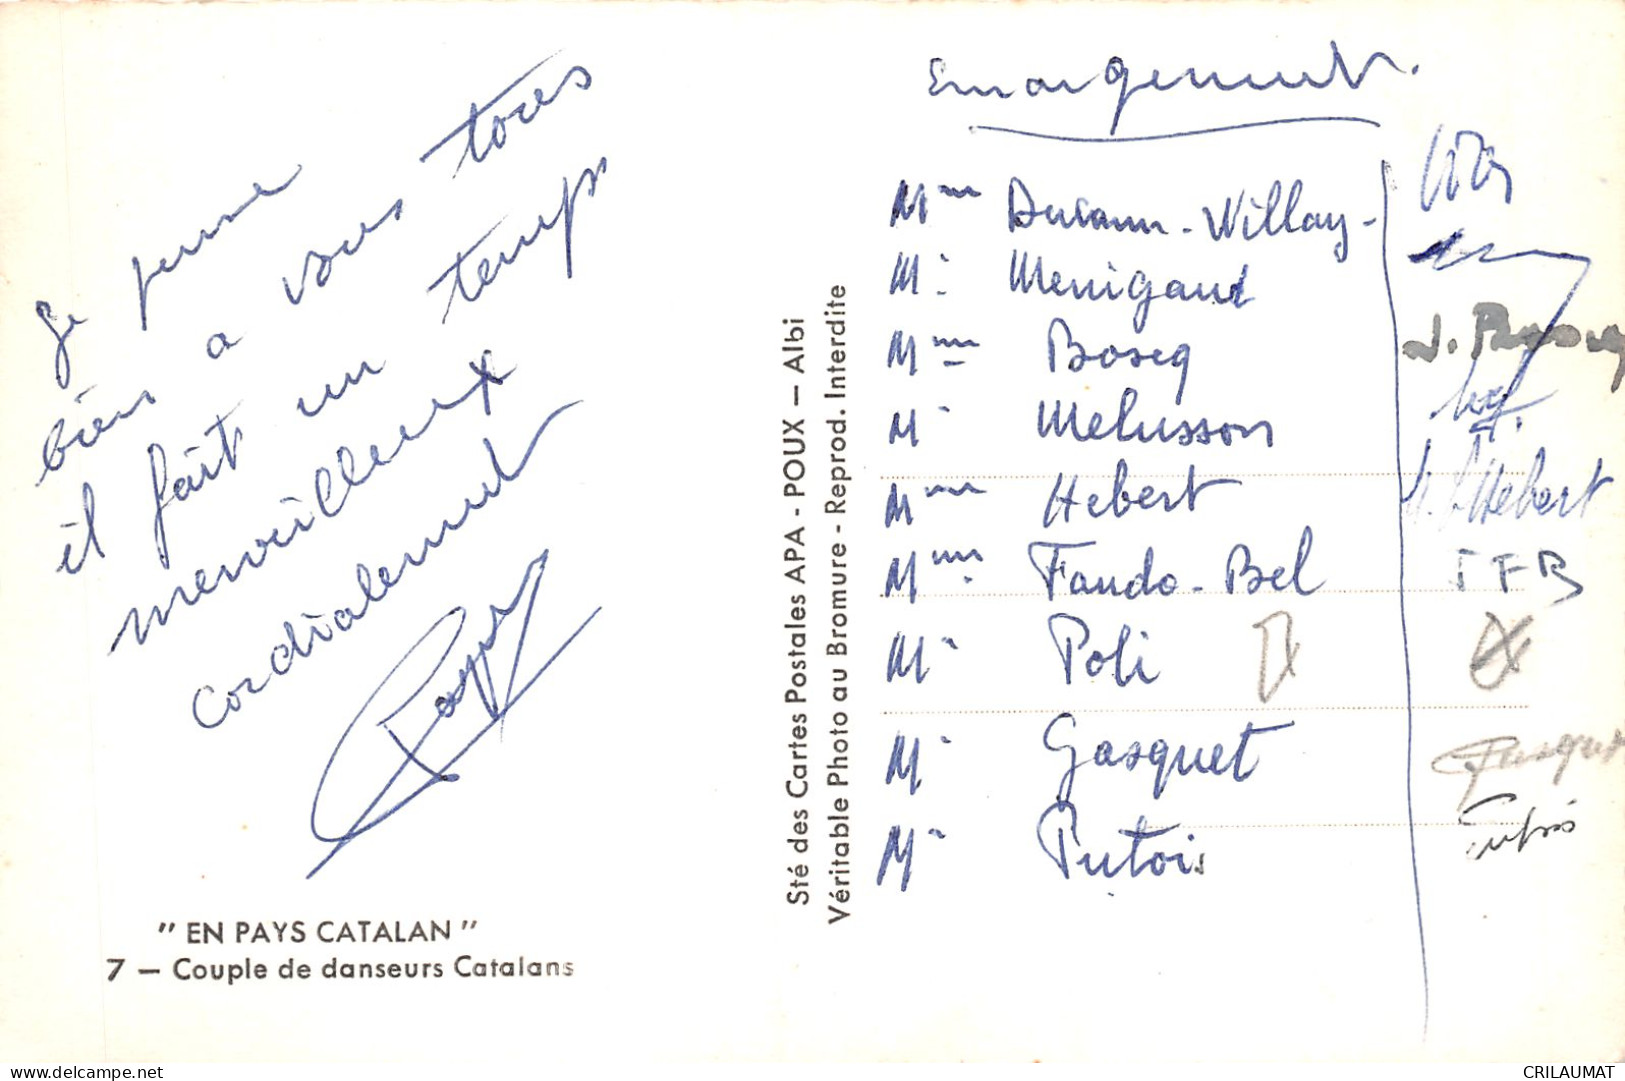 Je pense
bien a vous tous
il fait un temps
merveilleux
cordialement
" EN PAYS CATALAN "
7 — Couple de danseurs Catalans
Sté des Cartes Postales APA - POUX — Albi
Véritable Photo au Bromure - Reprod. Interdite
Emargement.
Mme Durann-Willay-
Mr Menigaud
Mme Boscq
Mr Melusson
Mme Hebert
Hebert
Mme Faudo-Bel
J F B
Mr Poli
Mr Gasquet
Gasquet
Mr Putois
Putois
CRILAUMAT